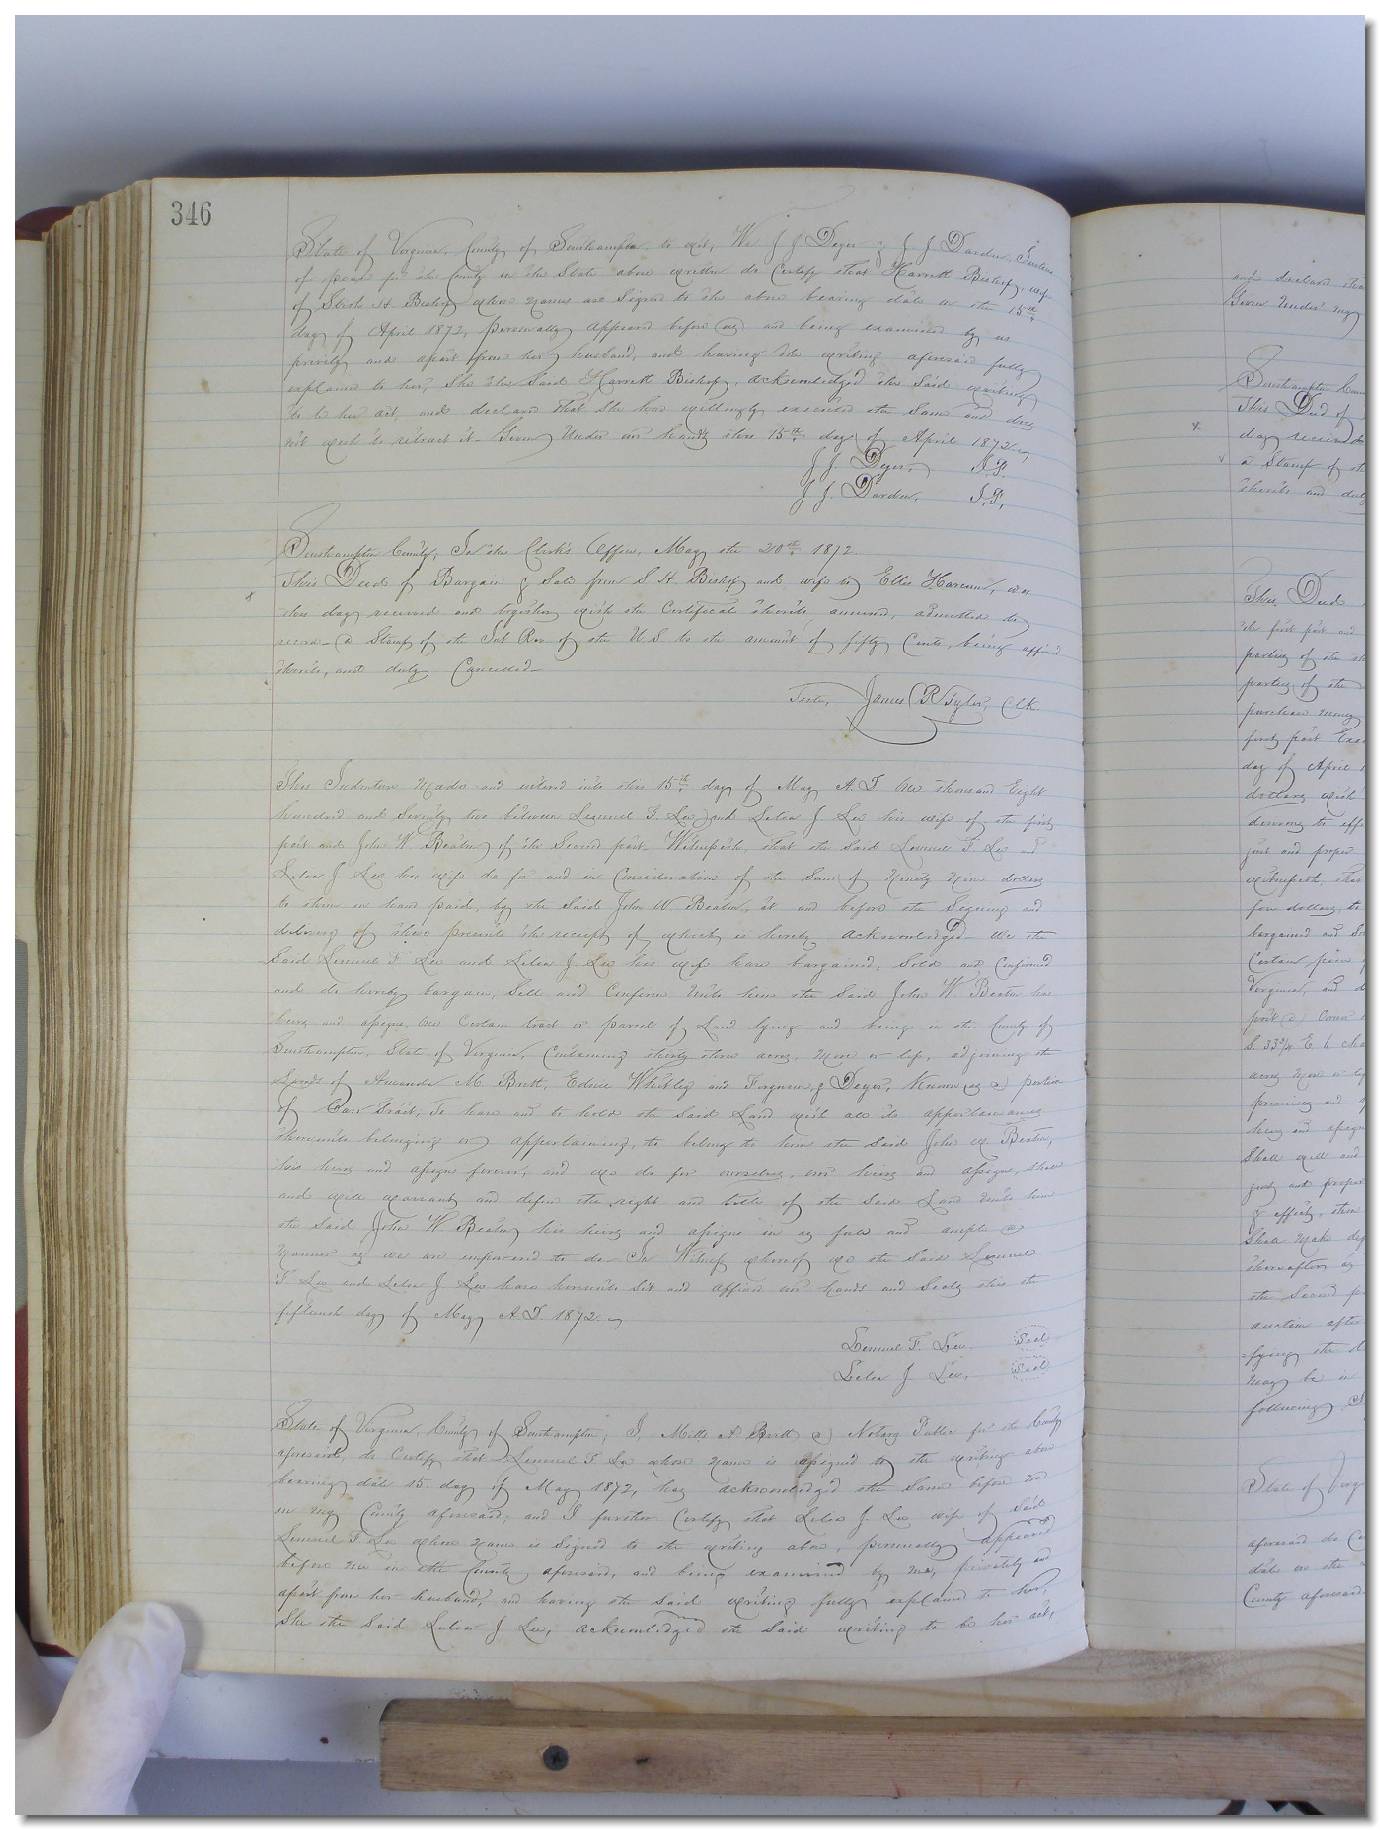 346
State of Virginia, County of Southampton, to wit, We J J Deyer & J J Darden, Justices
of peace for the County in the State above written do Certify that Harrett Bishop, wife
of S H Bishop whose names are Signed to the above bearing date on the 15th
day of April 1872, personally appeared before us and being examined by us
privily and apart from her husband, and having the writing aforesaid fully
explained to her, She the Said Harrett Bishop, acknowledged the Said writing
to be her act, and declared that She had willingly executed the Same and does
not wish to retract it. Given Under our hands this 15th day of April 1872
J J. Deyer, J.P.
J J. Darden, J.P.
Southampton County, In the Clerk's Office, May the 20th 1872.
This Deed of Bargain & Sale from S H. Bishop and wife to Elles Harcum, was
this day received and together with the Certificate thereto annexed, admitted to
record a Stamp of the Int Rev of the U.S to the amount of fifty Cents, being affixed
thereto, and duly Cancelled
Teste, James R Tyler, Clk.
This Indenture Made and entered into this 15th day of May A.D One thousand Eight
hundred and Seventy two between Lemuel F. Lee and Lelia J Lee his wife of the first
part and John W Beaton of the Second part. Witnesseth, that the Said Lemuel F. Lee and
Lelia J Lee his wife do for and in Consideration of the Sum of Ninety Nine dollars
to them in hand paid, by the Said John W. Beaton, at and before the Signing and
delivery of these presents the receipt of which is hereby acknowledged We the
Said Lemuel F. Lee and Lelia J. Lee his wife have bargained, Sold and Confirmed
and do hereby bargain, Sell and Confirm Unto him the Said John W Beaton his
heirs and assigns, One Certain tract or parcel of Land lying and being in the County of
Southampton, State of Virginia, Containing thirty three acres, more or less, adjoining the
Lands of Amanda M. Brett, Edwin Whitley and Ferguson & Deyer, Known as a portion
of Carr Tract, To have and to hold the Said Land with all its appurtenances
thereunto belonging or appertaining, to belong to him the Said John W. Beaton,
his heirs and assigns forever, and we do for ourselves, our heirs and assigns, shall
and will warrant and defend the right and title of the Said Land unto him
the Said John W Beaton his heirs and assigns in as full and ample a
Manner as we are empowered to do In Witness whereof we the Said Lemuel
F. Lee and Lelia J Lee have hereunto Set and affixed our hands and Seals this the
fifteenth day of May A.D. 1872.
Lemuel F. Lee. Seal
Lelia J Lee. Seal
State of Virginia, County of Southampton, I, Mills A Brett a Notary Public for the County
aforesaid, do Certify that Lemuel F. Lee whose name is assigned to the writing above
bearing date 15 day of May 1872, has acknowledged the Same before me
in my County aforesaid, and I further Certify that Lelia J. Lee wife of Said
Lemuel F. Lee whose name is Signed to the writing above, personally appeared
before me in the County aforesaid, and being examined by me, privately and
apart from her husband, and having the said writing fully explained to her,
She the Said Lelia J Lee, acknowledged the Said writing to be her act,
and declared
Given Under my
Southampton
This Deed of
day received
a Stamp of the
thereto and duly
This Deed
the first part and
parties of the
parties of the
purchase money
first part
day of April
dollars with
desirous to
just and proper
witnesseth, that
five dollars, to
bargained and
Certain
Virginia, and
S. 33 3/4 E 6
acres more or less
premises and
heirs and assigns
Shall well and
just and proper
& effect, then
Shall make
thereafter as
the Second
auction after
may be in
following
State of
aforesaid do
date on the
County aforesaid